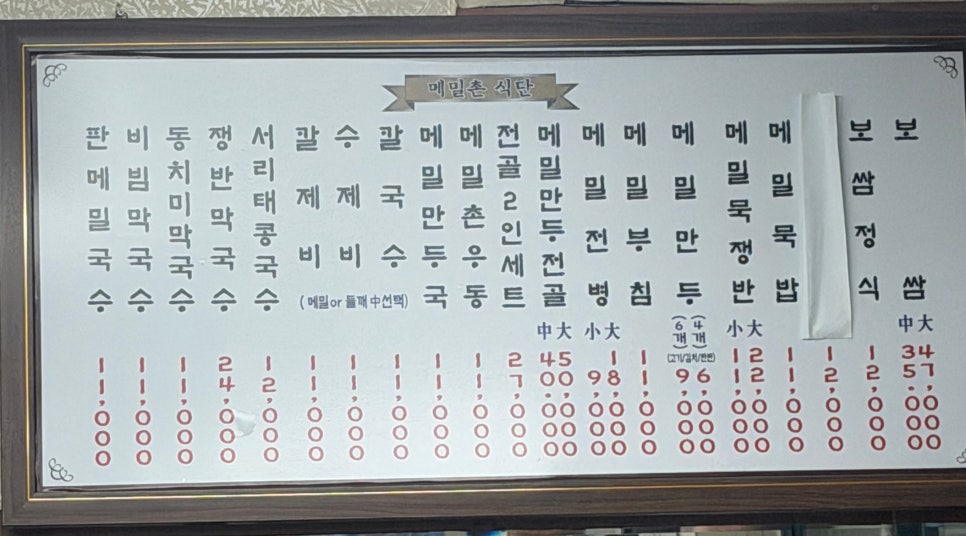 메밀촌 식단
판메밀국수 11,000
비빔막국수 11,000
동치미막국수 11,000
쟁반막국수 24,000
서리태콩국수 12,000
칼제비 11,000
수제비 11,000
칼국수 11,000
(메밀or들깨中선택)
메밀만두국 11,000
메밀촌우동 11,000
전골2인세트 27,000
메밀만두전골 中 40,000 大 50,000
메밀전병 小 9,000 大 18,000
메밀부침 11,000
메밀만두 (6개) 9,000 (4개) 6,000
(고기/김치/반반)
메밀묵쟁반 小 11,000 大 22,000
메밀묵밥 11,000
12,000
보쌈정식 12,000
보쌈 中 35,000 大 47,000